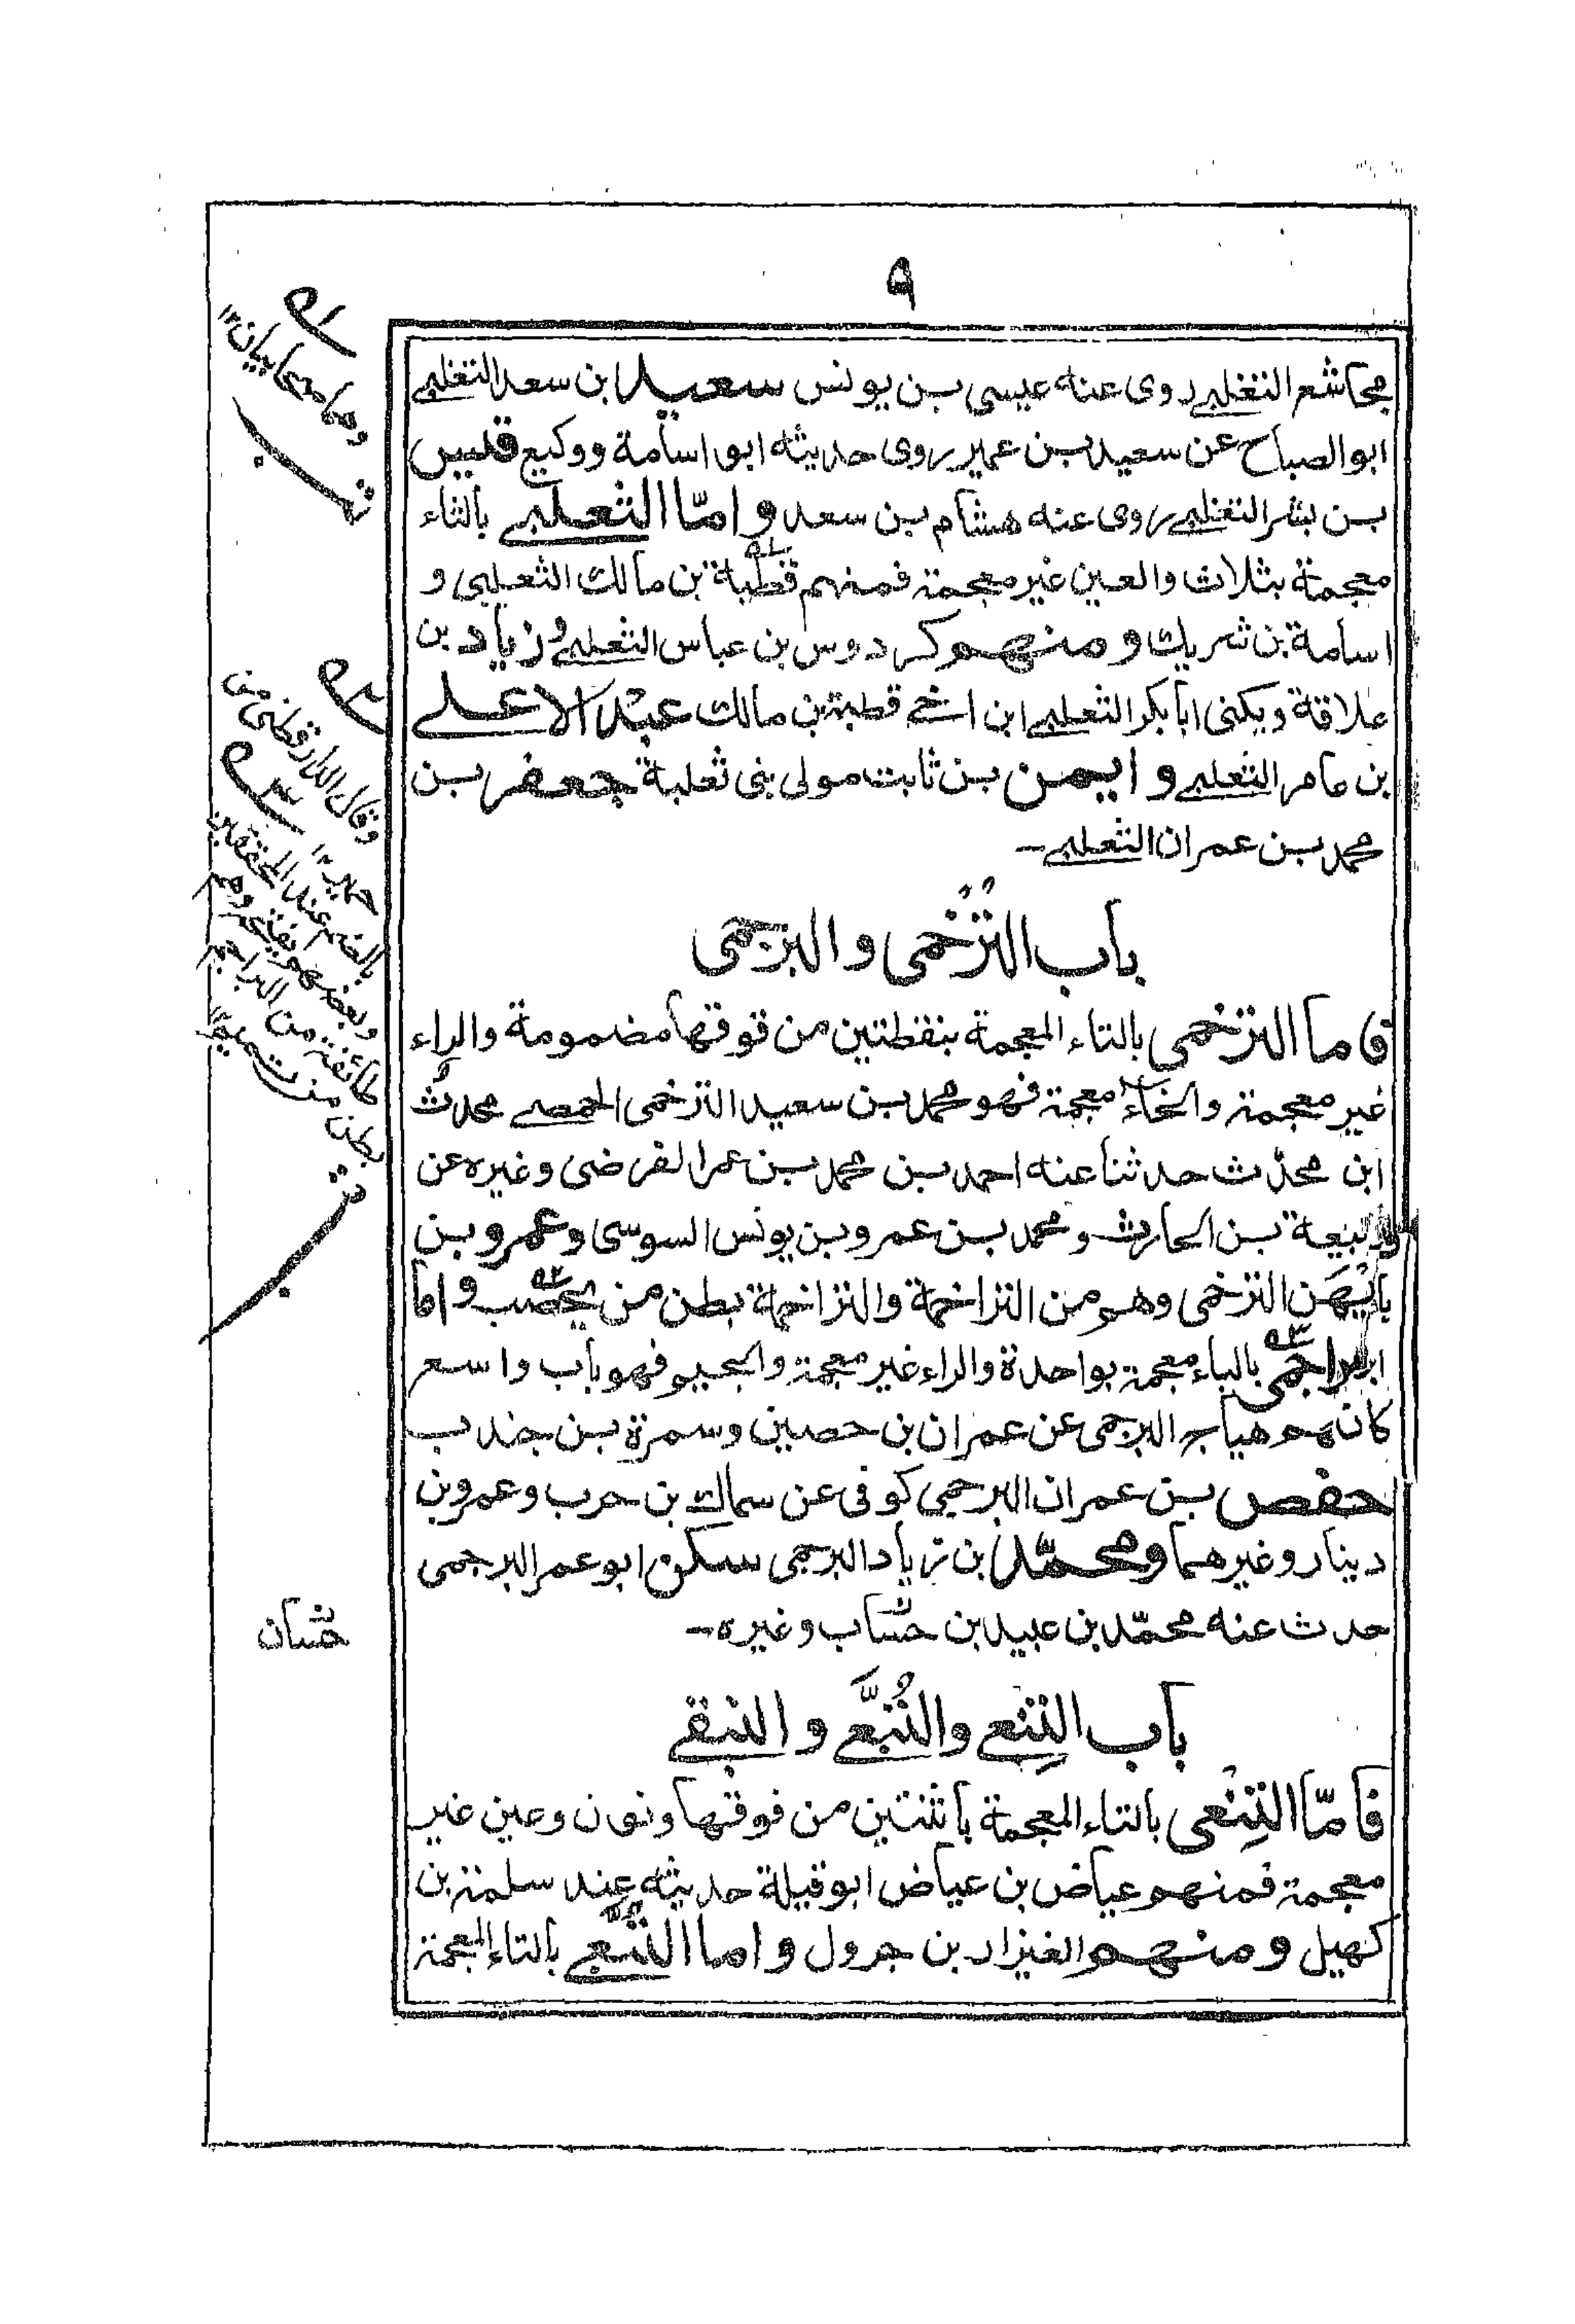 ٩
مجاشع التغلبي روى عنه عيسى بن يونس سعيد ابن سعد التغلبي
ابو الصباح عن سعيد بن عمير روى حديثه ابو اسامة ووكيع قليس
بن بشر التغلبي روى عنه هشام بن سعد واما الثعلبي بالثاء
معجمة بثلاث والعين غير معجمة فمنهم قطبة بن مالك الثعلبي و
اسامة بن شريك ومنهم كردوس بن عباس الثعلبي وزياد بن
علاقة ويكنى ابا بكر الثعلبي ابن اخي قطبة بن مالك عبد الاعلى
بن عامر الثعلبي و ايمن بن ثابت مولى بنى ثعلبة جعفر بن
محمد بن عمران الثعلبي ـ
باب التُرْخمى و البرجمى
فاما الترخمى بالتاء المعجمة بنقطتين من فوقها مضمومة والراء
غير معجمة والخاء معجمة فهو محمد بن سعيد الترخمى الحمصي محدث
ابن محدث حدثنا عنه احمد بن محمد بن عمر الفرضى وغيره عن
ربيعة بن الحارث ومحمد بن عمرو بن يونس السوسى وعمرو بن
الترخمى وهو من التراخمة والتراخمة بطن من يحصب واما
البراجمى بالباء معجمة بواحدة والراء غير معجمة والجيم فهو باب واسع
هياج البرجمى عن عمران بن حصين وسمرة بن جندب
حفص بن عمران البرجمي كوفى عن سماك بن حرب وعمرو بن
دينار وغيرهما ومحمّد ابن زياد البرجمى سكن ابو عمر البرجمى
حدث عنه محمّد بن عبيد بن حسّاب وغيره ـ
باب التِنعي والتُبَّعي و النبقي
فامّا التِنْعى بالتاء المعجمة باثنتين من فوقها ونون وعين غير
معجمة فمنهم عياض بن عياض ابو قيلة حديثه عند سلمة بن
كهيل ومنهم الغيزار بن جرول واما التُبَّعي بالتاء المعجمة
١
وهما صحابيان ١٢
٢
وقال الدارقطنى من
حمير ١٢
٣
بالضم عند المحققين
وبعضهم بفتح وهم
طائفة من البراجم
بطن من تميم
حسان